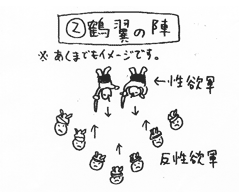 ②鶴翼の陣
※あくまでもイメージです。
←性欲軍
反性欲軍